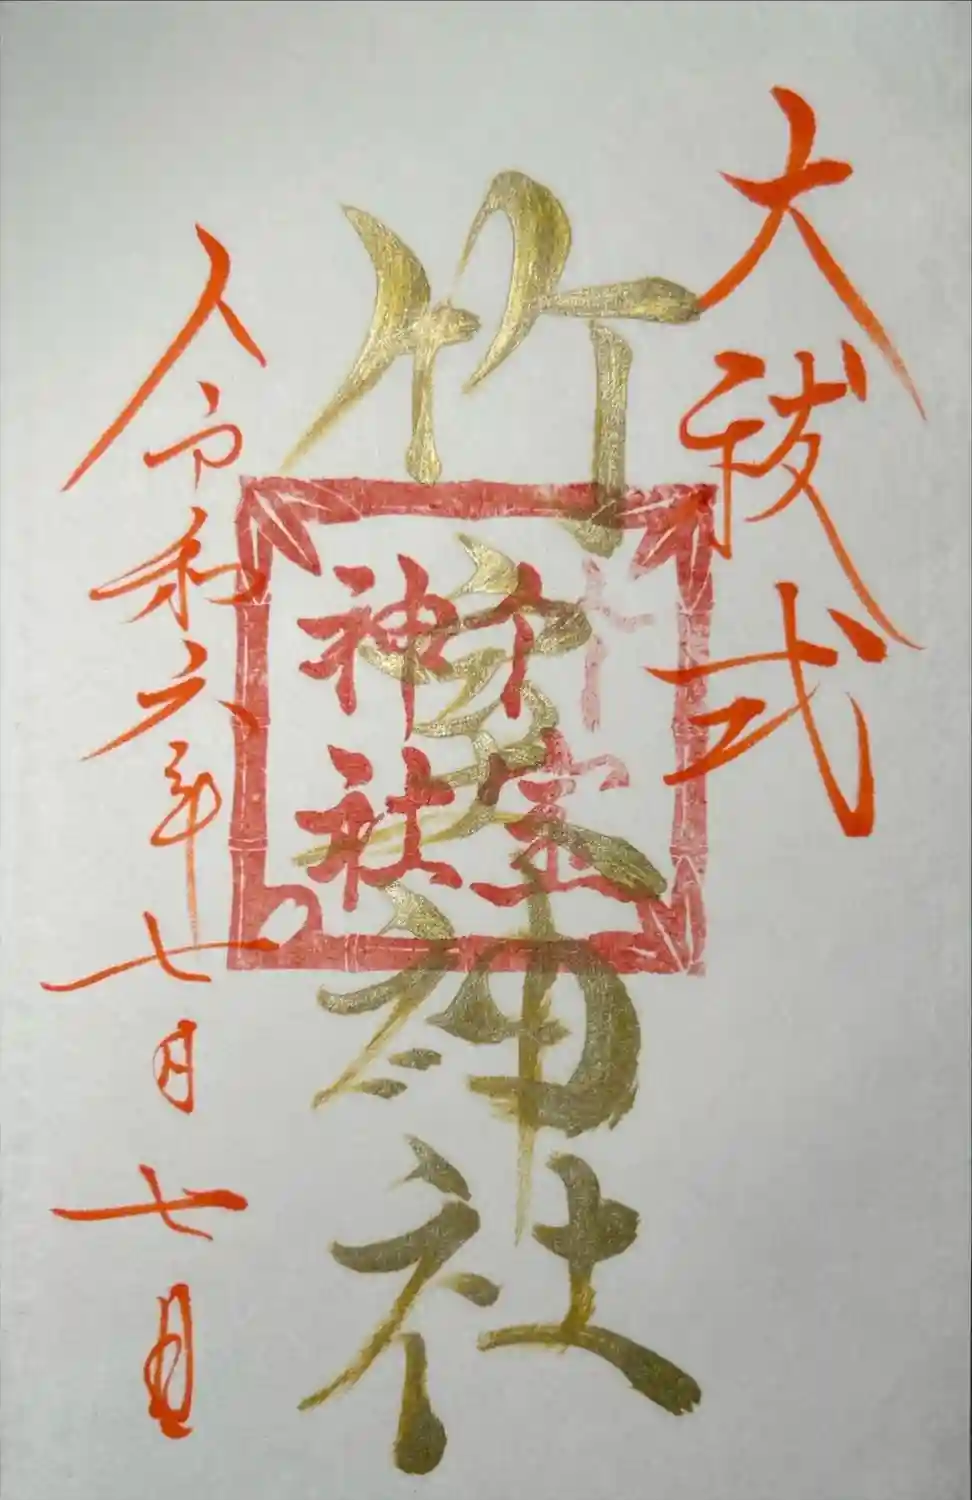 大祓式
竹室神社
竹室
神社
令和六年七月七日